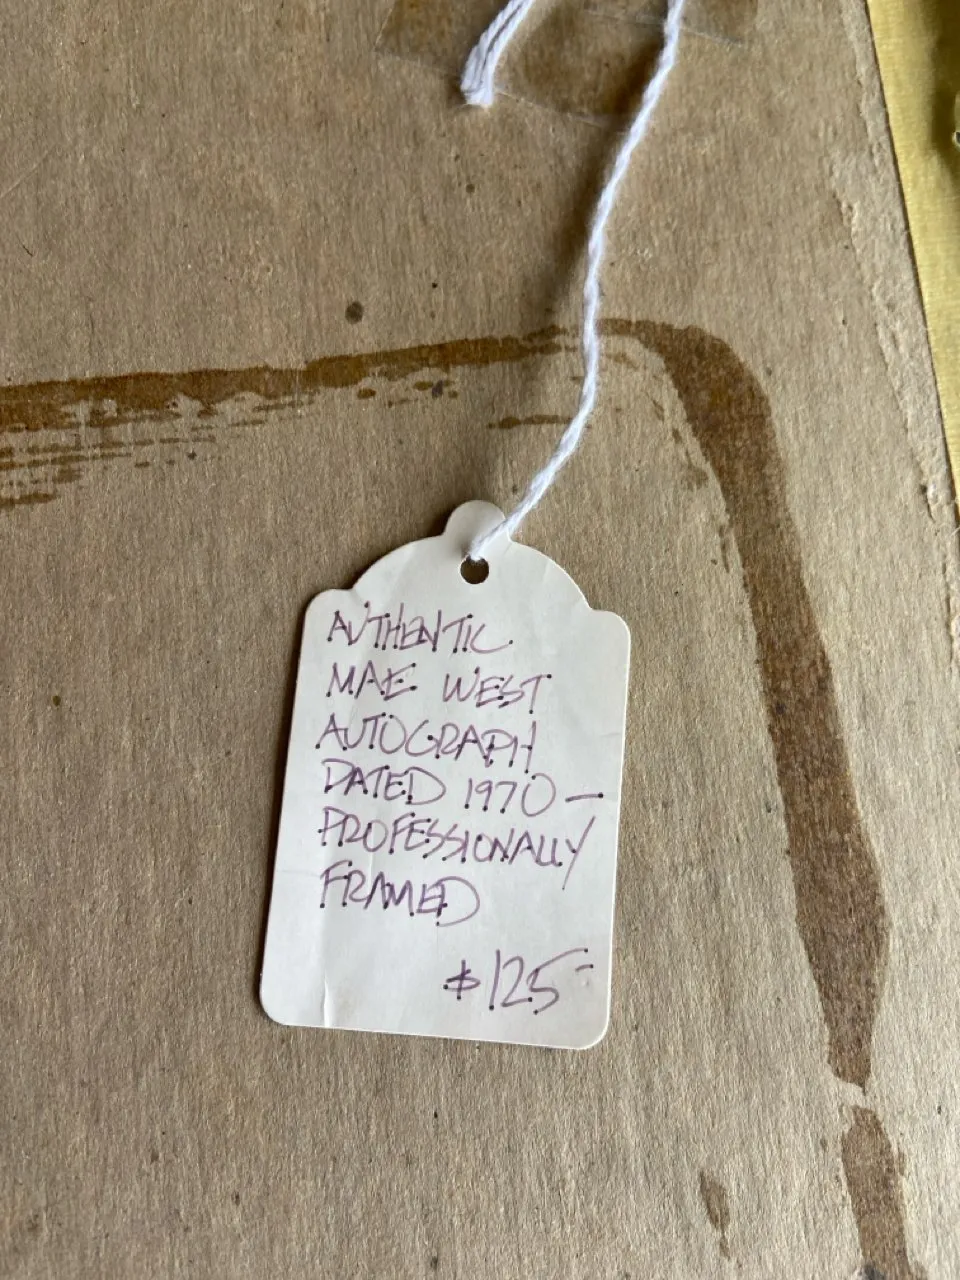 AUTHENTIC
MAE WEST
AUTOGRAPH
DATED 1970 —
PROFESSIONALLY
FRAMED
$125-